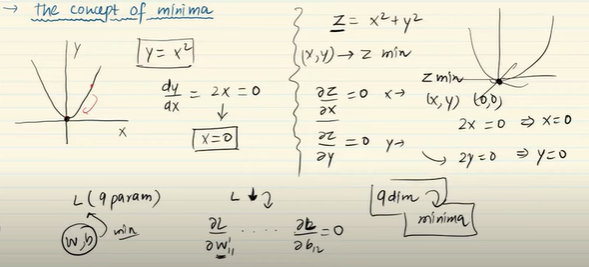 → the concept of minima
y
x
y = x²
dy/dx = 2x = 0
↓
x=0
z = x² + y²
(x,y) → z min
∂z/∂x = 0 x→
∂z/∂y = 0 y→
z min
(x,y) (0,0)
2x = 0 ⇒ x=0
2y=0 ⇒ y=0
L (9 param)
w,b min
L ↓
∂L/∂w'₁₁ . . . . . ∂L/∂b₁₂ = 0
9dim
minima